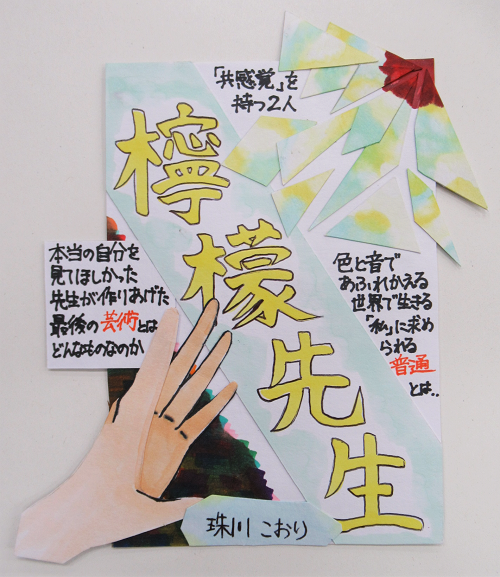 「共感覚」を
持つ2人
檸檬先生
本当の自分を
見てほしかった
先生が作りあげた
最後の芸術とは
どんなものなのか
色と音で
あふれかえる
世界で生きる
「私」に求め
られる
普通
とは..
珠川こおり